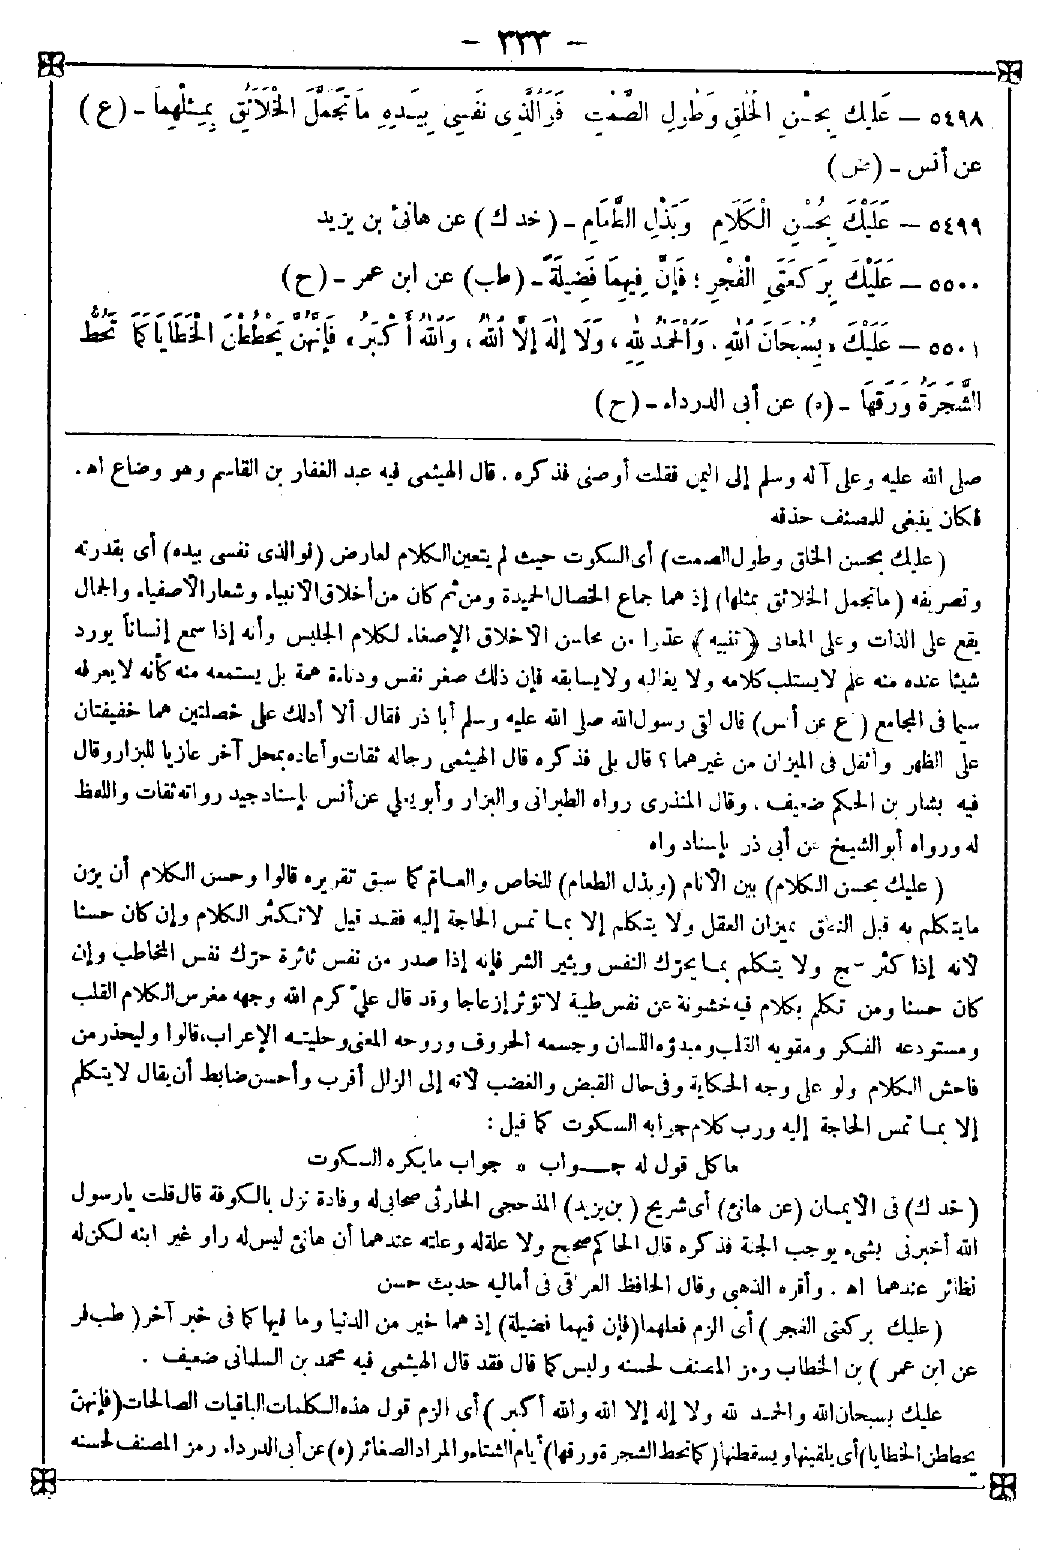 - ٣٣٣ -
٥٤٩٨ — عَلَيْكَ بِحُسْنِ الْخُلُقِ وَطُولِ الصَّمْتِ فَوَالَّذِى نَفْسِى بِيَدِهِ مَا تَجَمَّلَ الْخَلَائِقُ بِمِثْلِهِمَا - (ع)
عن أنس - (ض)
٥٤٩٩ — عَلَيْكَ بِحُسْنِ الْكَلَامِ وَبَذْلِ الطَّعَامِ - (خد ك) عن هانئ بن يزيد
٥٥٠٠ — عَلَيْكَ بِرَكْعَتَىِ الْفَجْرِ ؛ فَإِنَّ فِيهِمَا فَضِيلَةً - (طب) عن ابن عمر - (ح)
٥٥٠١ — عَلَيْكَ ، بِسُبْحَانَ اللهِ ، وَالْحَمْدُ لِلهِ ، وَلَا إِلَهَ إِلَّا اللهُ ، وَاللهُ أَكْبَرُ ، فَإِنَّهُنَّ يَحْطُطْنَ الْخَطَايَا كَمَا تَحُطُّ
الشَّجَرَةُ وَرَقَهَا - (ه) عن أبى الدرداء - (ح)
صلى الله عليه وعلى آله وسلم إلى اليمن فقلت أوصنى فذكره . قال الهيثمى فيه عبد الغفار بن القاسم وهو وضاع اه .
فكان ينبغى للمصنف حذفه
(عليك بحسن الخلق وطول الصمت) أى السكوت حيث لم يتعين الكلام لعارض (فو الذى نفسى بيده) أى بقدرته
وتصريفه (ما تجمل الخلائق بمثلها) إذ هما جماع الخصال الحميدة ومن ثم كان من أخلاق الانبياء وشعار الأصفياء والجمال
يقع على الذات وعلى المعانى ﴿تنبيه﴾ عدوا من محاسن الاخلاق الإصغاء لكلام الجليس وأنه إذا سمع إنسانا يورد
شيئا عنده منه علم لا يستلب كلامه ولا يغالبه ولا يسابقه فإن ذلك صغر نفس ودناءة همة بل يستمعه منه كأنه لا يعرفه
سيما فى المجامع (ع عن أنس) قال لقى رسول الله صلى الله عليه وسلم أبا ذر فقال ألا أدلك على خصلتين هما خفيفتان
على الظهر وأثقل فى الميزان من غيرهما ؟ قال بلى فذكره قال الهيثمى رجاله ثقات وأعاده بمحل آخر عازيا للبزار وقال
فيه بشار بن الحكم ضعيف . وقال المنذرى رواه الطبرانى والبزار وأبو يعلى عن أنس بإسناد جيد رواته ثقات واللفظ
له ورواه أبو الشيخ عن أبى ذر بإسناد واه
(عليك بحسن الكلام) بين الأنام (وبذل الطعام) للخاص والعام كما سبق تقريره قالوا وحسن الكلام أن يزن
ما يتكلم به قبل النطق بميزان العقل ولا يتكلم إلا بما تمس الحاجة إليه فقد قيل لا تكثر الكلام وإن كان حسنا
لأنه إذا كثر سمج ولا يتكلم بما يحرّك النفس ويثير الشر فإنه إذا صدر من نفس ثائرة حرّك نفس المخاطب وإن
كان حسنا ومن تكلم بكلام فيه خشونة عن نفس طيبة لا تؤثر إزعاجا وقد قال علىّ كرم الله وجهه مغرس الكلام القلب
ومستودعه الفكر ومقويه القلب ومبدؤه اللسان وجسمه الحروف وروحه المعنى وحليته الإعراب، قالوا وليحذر من
فاحش الكلام ولو على وجه الحكاية وفى حال القبض والغضب لأنه إلى الزلل أقرب وأحسن ضابط أن يقال لا يتكلم
إلا بما تمس الحاجة إليه ورب كلام جوابه السكوت كما قيل :
ما كل قول له جواب ٥ جواب ما يكره السكوت
(خد ك) فى الايمان (عن هانئ) أى شريح (بن يزيد) المذحجى الحارثى صحابى له وفادة نزل بالكوفة قال قلت يا رسول
الله أخبرنى بشىء يوجب الجنة فذكره قال الحاكم صحيح ولا علة له وعلته عندهما أن هانئ ليس له راو غير ابنه لكن له
نظائر عندهما اه . وأقره الذهبى وقال الحافظ العراقى فى أماليه حديث حسن
(عليك بركعتى الفجر) أى الزم فعلهما (فإن فيهما فضيلة) إذ هما خير من الدنيا وما فيها كما فى خبر آخر (طب
عن ابن عمر) بن الخطاب رمز المصنف لحسنه وليس كما قال فقد قال الهيثمى فيه محمد بن السلمانى ضعيف .
عليك بسبحان الله والحمد لله ولا إله إلا الله والله أكبر) أى الزم قول هذه الكلمات الباقيات الصالحات (فإنهن
يحططن الخطايا) أى يلقينها ويسقطنها (كما تحط الشجرة ورقها) أيام الشتاء والمراد الصغائر (ه) عن أبى الدرداء رمز المصنف لحسنه